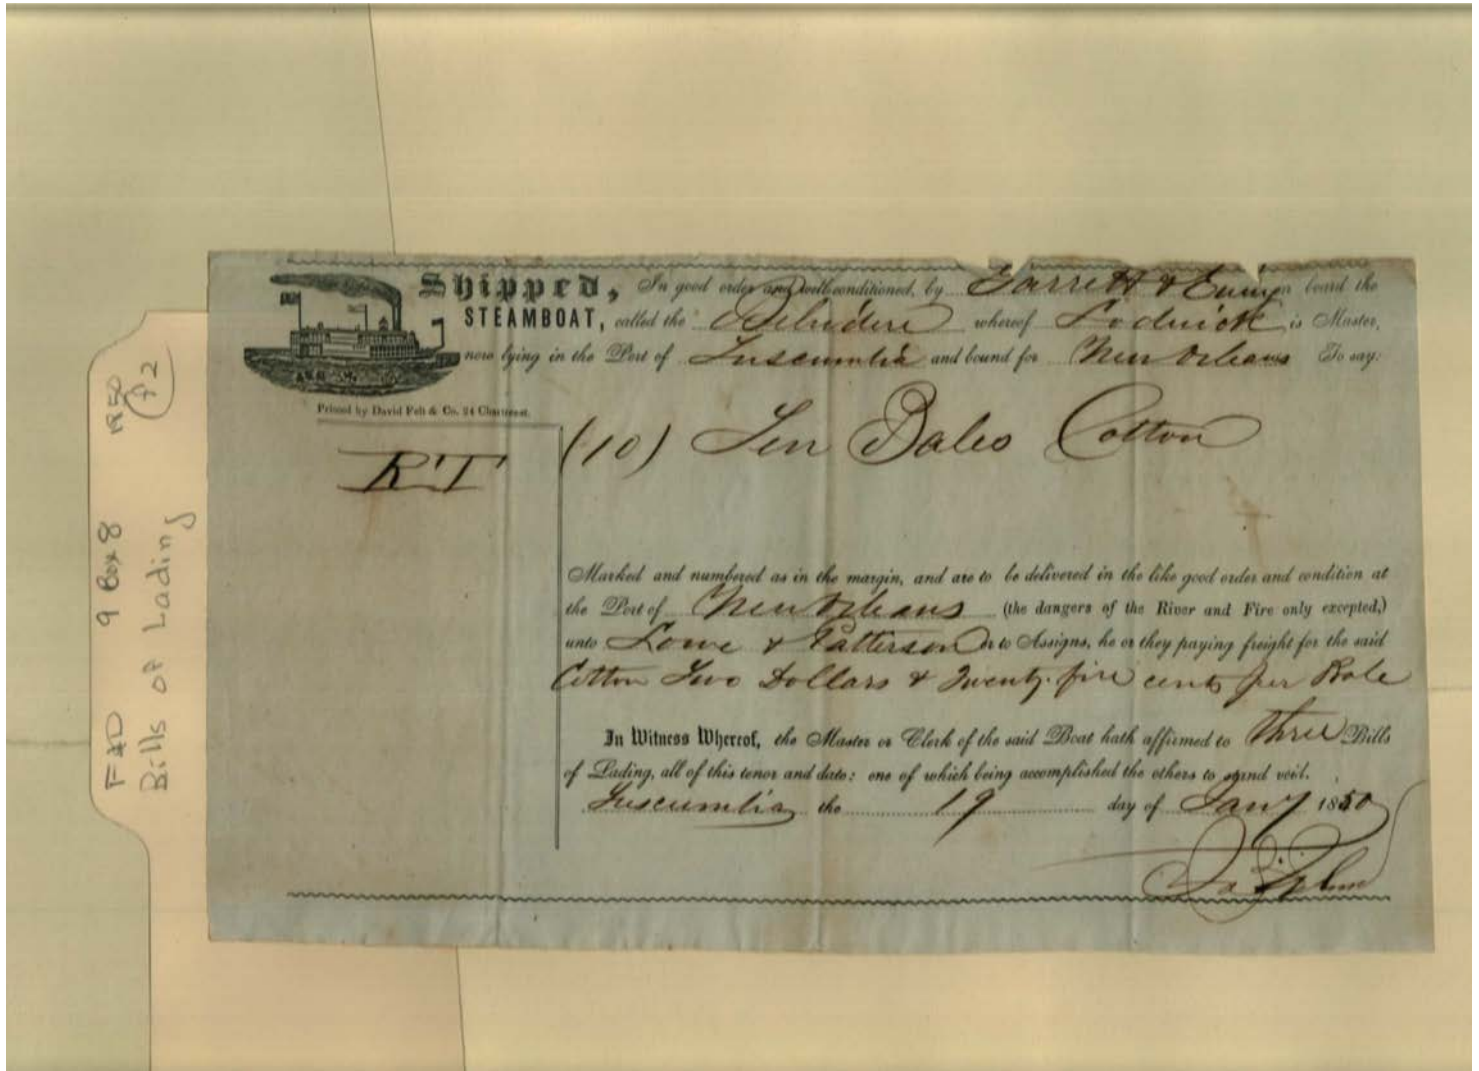 Shipped, In good order and well conditioned, by Garrett & on board the
STEAMBOAT, called the Belvidere whereof Lodwick is Master,
now lying in the Port of Tuscumbia and bound for New Orleans To say:
Printed by David Felt & Co. 24 Chartres st.
(10) Ten Bales Cotton
RT
Marked and numbered as in the margin, and are to be delivered in the like good order and condition at
the Port of New Orleans (the dangers of the River and Fire only excepted,)
unto Lowe & Patterson or to Assigns, he or they paying freight for the said
Cotton Two Dollars & Twenty-five cents per Bale
In Witness Whereof, the Master or Clerk of the said Boat hath affirmed to Three Bills
of Lading, all of this tenor and date: one of which being accomplished the others to stand void.
Tuscumbia the 19 day of Jany 1850
F&D 9 Box 8 1850
P2
Bills of Lading